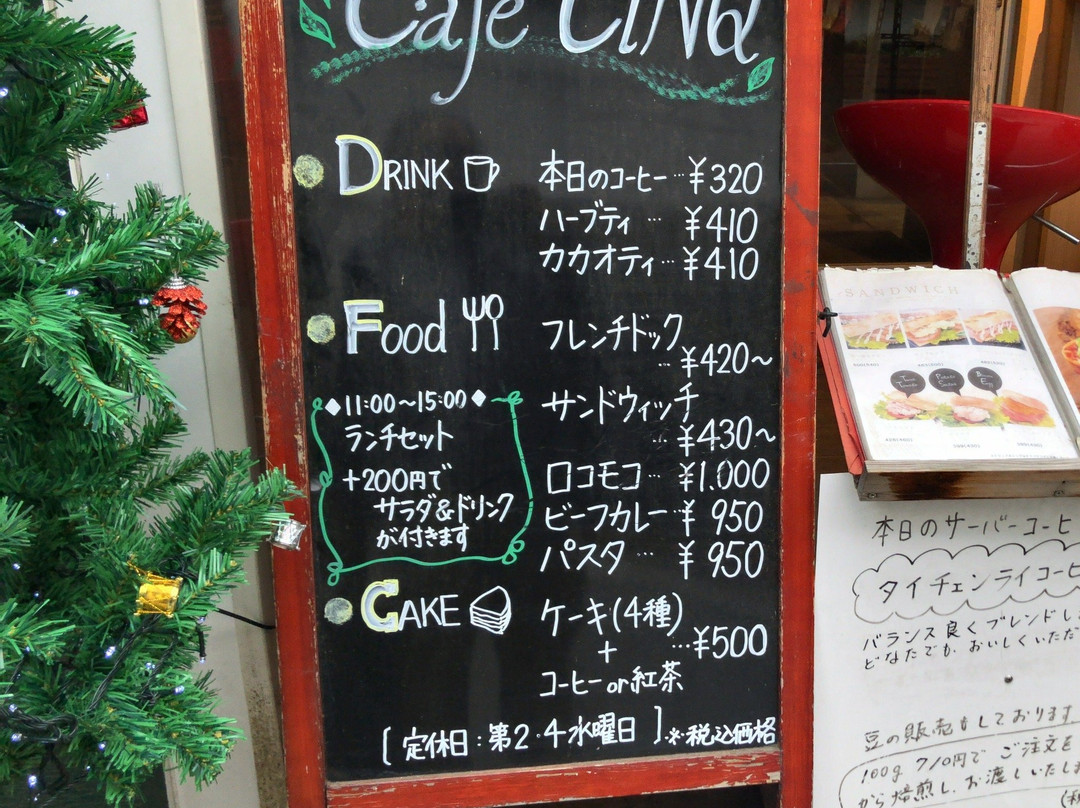 Cafe CINQ
DRINK
本日のコーヒー…¥320
ハーブティ…¥410
カカオティ…¥410
Food
フレンチドック
…¥420~
サンドウィッチ
…¥430~
ロコモコ…¥1.000
ビーフカレー…¥950
パスタ…¥950
◆11:00~15:00◆
ランチセット
+200円で
サラダ&ドリンク
が付きます
CAKE
ケーキ(4種)
+
…¥500
コーヒーor紅茶
[定休日:第2・4水曜日]※税込価格
SANDWICH
本日のサーバーコーヒ
タイチェンライコーヒ
バランス良くブレンドし
どなたでも、おいしくいただ
豆の販売もしております
100g 710円で ご注文を
から焙煎し、お渡しいたしま